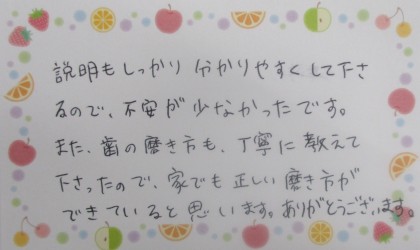 説明もしっかり分かりやすくして下さ
るので、不安が少なかったです。
また、歯の磨き方も、丁寧に教えて
下さったので、家でも正しい磨き方が
できていると思います。ありがとうございます。